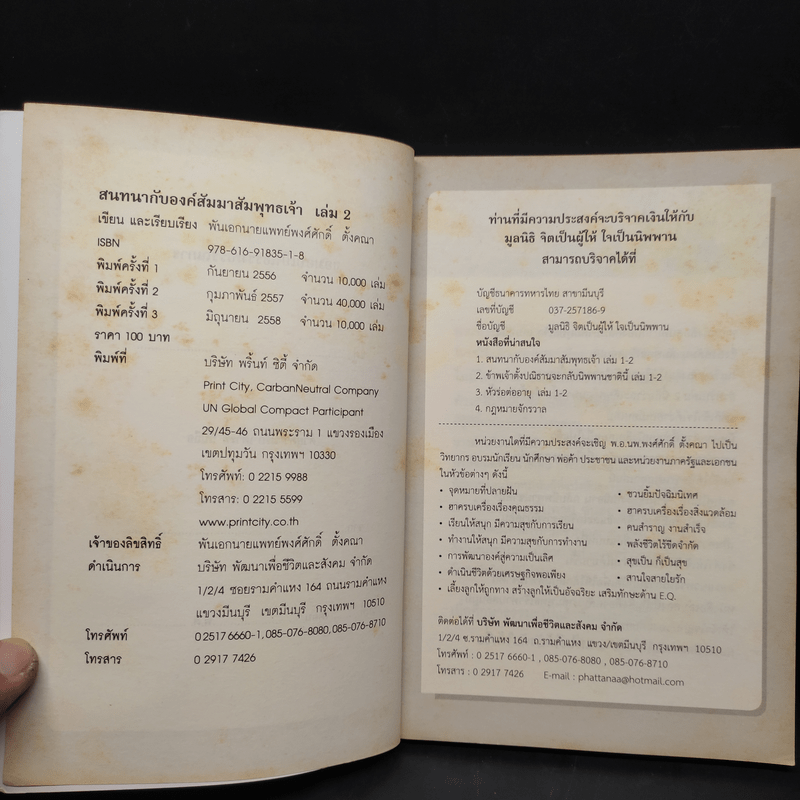 สนทนากับองค์สัมมาสัมพุทธเจ้า เล่ม 2
เขียน และเรียบเรียง พันเอกนายแพทย์พงศ์ศักดิ์ ตั้งคณา
ISBN 978-616-91835-1-8
พิมพ์ครั้งที่ 1 กันยายน 2556 จำนวน 10,000 เล่ม
พิมพ์ครั้งที่ 2 กุมภาพันธ์ 2557 จำนวน 40,000 เล่ม
พิมพ์ครั้งที่ 3 มิถุนายน 2558 จำนวน 10,000 เล่ม
ราคา 100 บาท
พิมพ์ที่ บริษัท พริ้นท์ ซิตี้ จำกัด
Print City, CarbanNeutral Company
UN Global Compact Participant
29/45-46 ถนนพระราม 1 แขวงรองเมือง
เขตปทุมวัน กรุงเทพฯ 10330
โทรศัพท์: 0 2215 9988
โทรสาร: 0 2215 5599
www.printcity.co.th
เจ้าของลิขสิทธิ์ พันเอกนายแพทย์พงศ์ศักดิ์ ตั้งคณา
ดำเนินการ บริษัท พัฒนาเพื่อชีวิตและสังคม จำกัด
1/2/4 ซอยรามคำแหง 164 ถนนรามคำแหง
แขวงมีนบุรี เขตมีนบุรี กรุงเทพฯ 10510
โทรศัพท์ 0 2517 6660-1, 085-076-8080, 085-076-8710
โทรสาร 0 2917 7426
ท่านที่มีความประสงค์จะบริจาคเงินให้กับ
มูลนิธิ จิตเป็นผู้ให้ ใจเป็นนิพพาน
สามารถบริจาคได้ที่
บัญชีธนาคารทหารไทย สาขามีนบุรี
เลขที่บัญชี 037-257186-9
ชื่อบัญชี มูลนิธิ จิตเป็นผู้ให้ ใจเป็นนิพพาน
หนังสือที่น่าสนใจ
1. สนทนากับองค์สัมมาสัมพุทธเจ้า เล่ม 1-2
2. ข้าพเจ้าตั้งปณิธานจะกลับนิพพานชาตินี้ เล่ม 1-2
3. หัวร่อต่ออายุ เล่ม 1-2
4. กฎหมายจักรวาล
หน่วยงานใดที่มีความประสงค์จะเชิญ พ.อ.นพ.พงศ์ศักดิ์ ตั้งคณา ไปเป็น
วิทยากร อบรมนักเรียน นักศึกษา พ่อค้า ประชาชน และหน่วยงานภาครัฐและเอกชน
ในหัวข้อต่างๆ ดังนี้
• จุดหมายที่ปลายฝัน
• ฮาครบเครื่องเรื่องคุณธรรม
• เรียนให้สนุก มีความสุขกับการเรียน
• ทำงานให้สนุก มีความสุขกับการทำงาน
• การพัฒนาองค์สู่ความเป็นเลิศ
• ดำเนินชีวิตด้วยเศรษฐกิจพอเพียง
• เลี้ยงลูกให้ถูกทาง สร้างลูกให้เป็นอัจฉริยะ เสริมทักษะด้าน E.Q.
• ชวนยิ้มปัจฉิมนิเทศ
• ฮาครบเครื่องเรื่องสิ่งแวดล้อม
• คนสำราญ งานสำเร็จ
• พลังชีวิตไร้ขีดจำกัด
• สุขเป็น ก็เป็นสุข
• สานใจสายใยรัก
ติดต่อได้ที่ บริษัท พัฒนาเพื่อชีวิตและสังคม จำกัด
1/2/4 ซ.รามคำแหง 164 ถ.รามคำแหง แขวง/เขตมีนบุรี กรุงเทพฯ 10510
โทรศัพท์ : 0 2517 6660-1 , 085-076-8080 , 085-076-8710
โทรสาร : 0 2917 7426 E-mail : phattanaa@hotmail.com